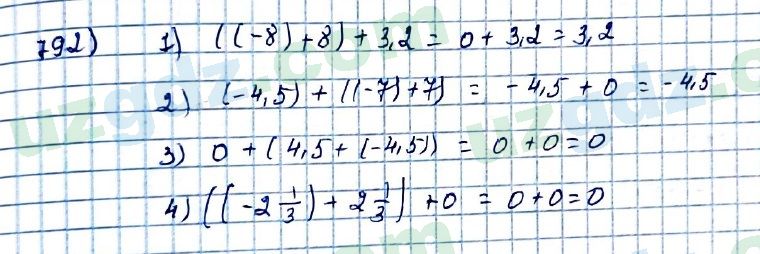 792) 1) ((-8)+8)+3,2 = 0+3,2 = 3,2
2) (-4,5)+((-7)+7) = -4,5+0 = -4,5
3) 0+(4,5+(-4,5)) = 0+0=0
4) ((-2 1/3)+2 1/3)+0 = 0+0=0